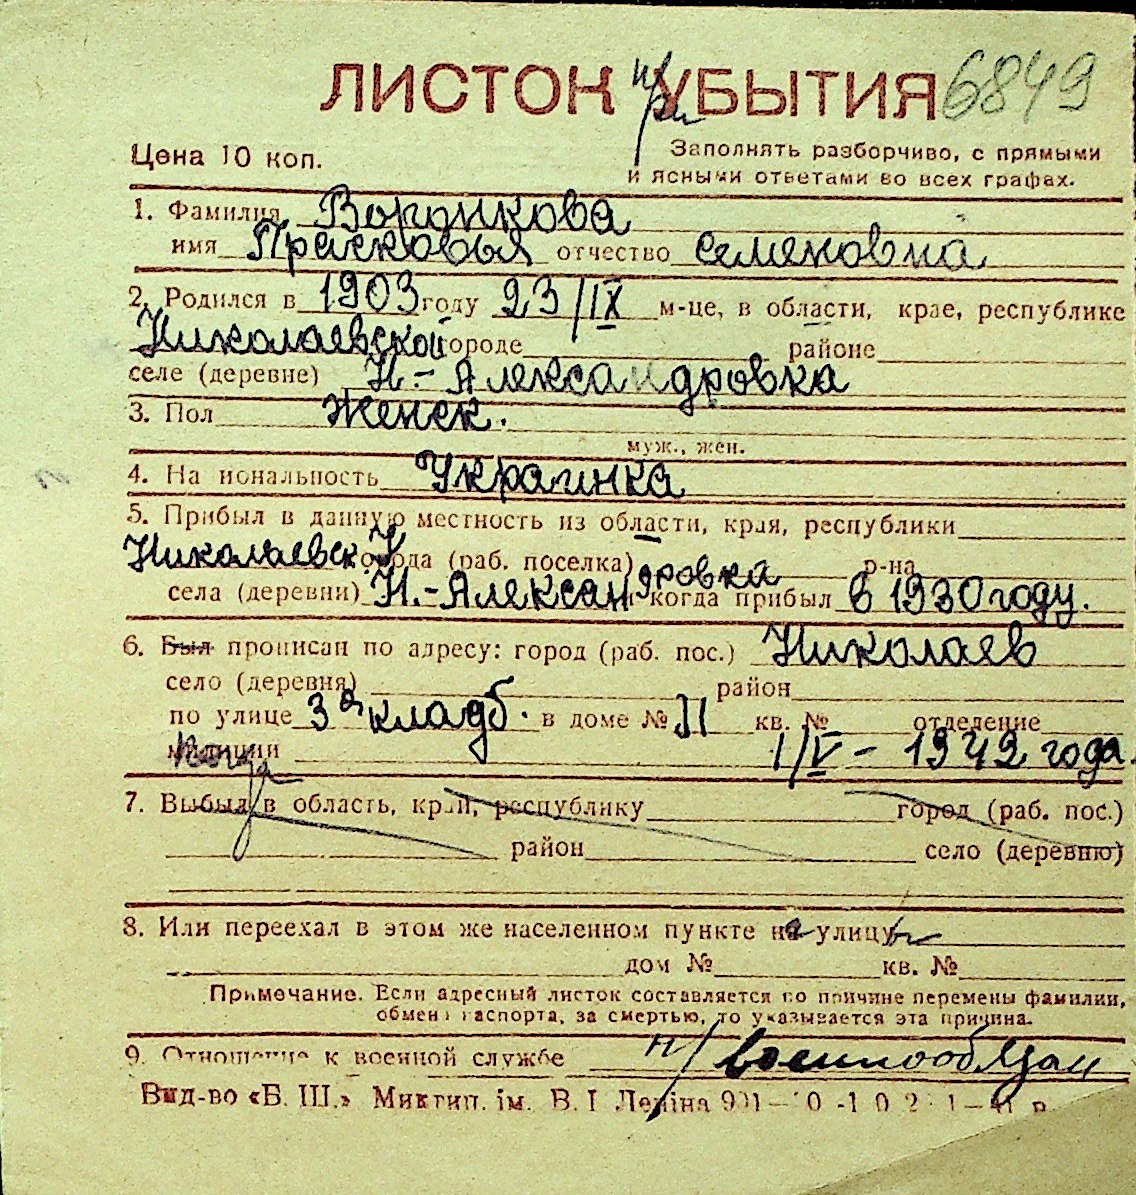 ЛИСТОК УБЫТИЯ 6849
при
Цена 10 коп.
Заполнять разборчиво, с прямыми
и ясными ответами во всех графах.
1. Фамилия Воронкова
имя Прасковья отчество Семеновна
2. Родился в 1903 году 23/IX м-це, в области, крае, республике
Николаевской городе районе
селе (деревне) Н.-Александровка
3. Пол женск.
муж., жен.
4. На иональность Украинка
5. Прибыл в данную местность из области, края, республики
Николаевск. города (раб. поселка) р-на
села (деревни) Н.-Александровка когда прибыл в 1930 году.
6. Был прописан по адресу: город (раб. пос.) Николаев
село (деревня) район
по улице 3я кладб. в доме № 11 кв. № отделение
милиции когда 1/V - 1942 года
7. Выбыл в область, край, республику город (раб. пос.)
район село (деревню)
8. Или переехал в этом же населенном пункте на улицу
дом № кв. №
Примечание. Если адресный листок составляется по причине перемены фамилии,
обмена паспорта, за смертью, то указывается эта причина.
9. Отношение к военной службе н/военнообязан
Вид-во «Б. Ш.» Миктип. ім. В. І Леніна